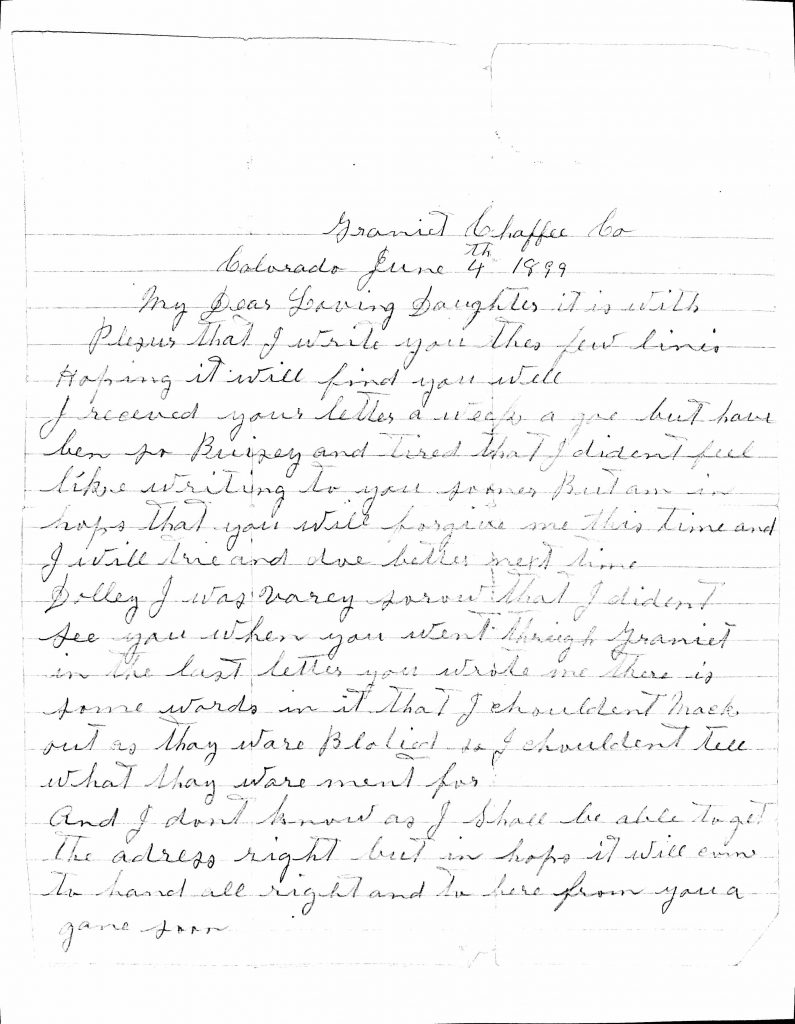 Graniet Chaffee Co
Colorado June 4th 1899
My Dear Loving Daughter it is with
Plesur that I write you thes few lines
Hoping it will find you well
I receved your letter a week a goe but have
ben so Buizey and tired that I dident feel
like writing to you sooner But am in
hops that you will forgive me this time and
I will trie and doe better next time
Dolley I was varey sorow that I dident
see you when you went through Graniet
in the last letter you wrote me there is
some words in it that I chouldent Mack
out as thay ware Blotied so I chouldent tell
what thay ware ment for
And I dont know as I shall be able to get
the adress right but in hops it will com
to hand all right and to here from you a
gane soon